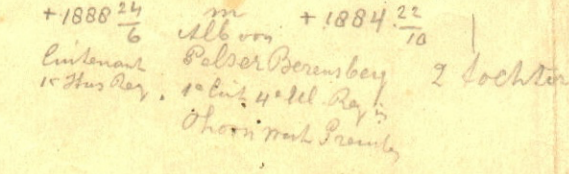 + 1888 24/6 m + 1884 22/10
Alb von
lieutenant Pelser Berensberg 2 tochter
1e Hus Reg. 1e Lieut 4e Uhl Reg in
Thorn West Preussen